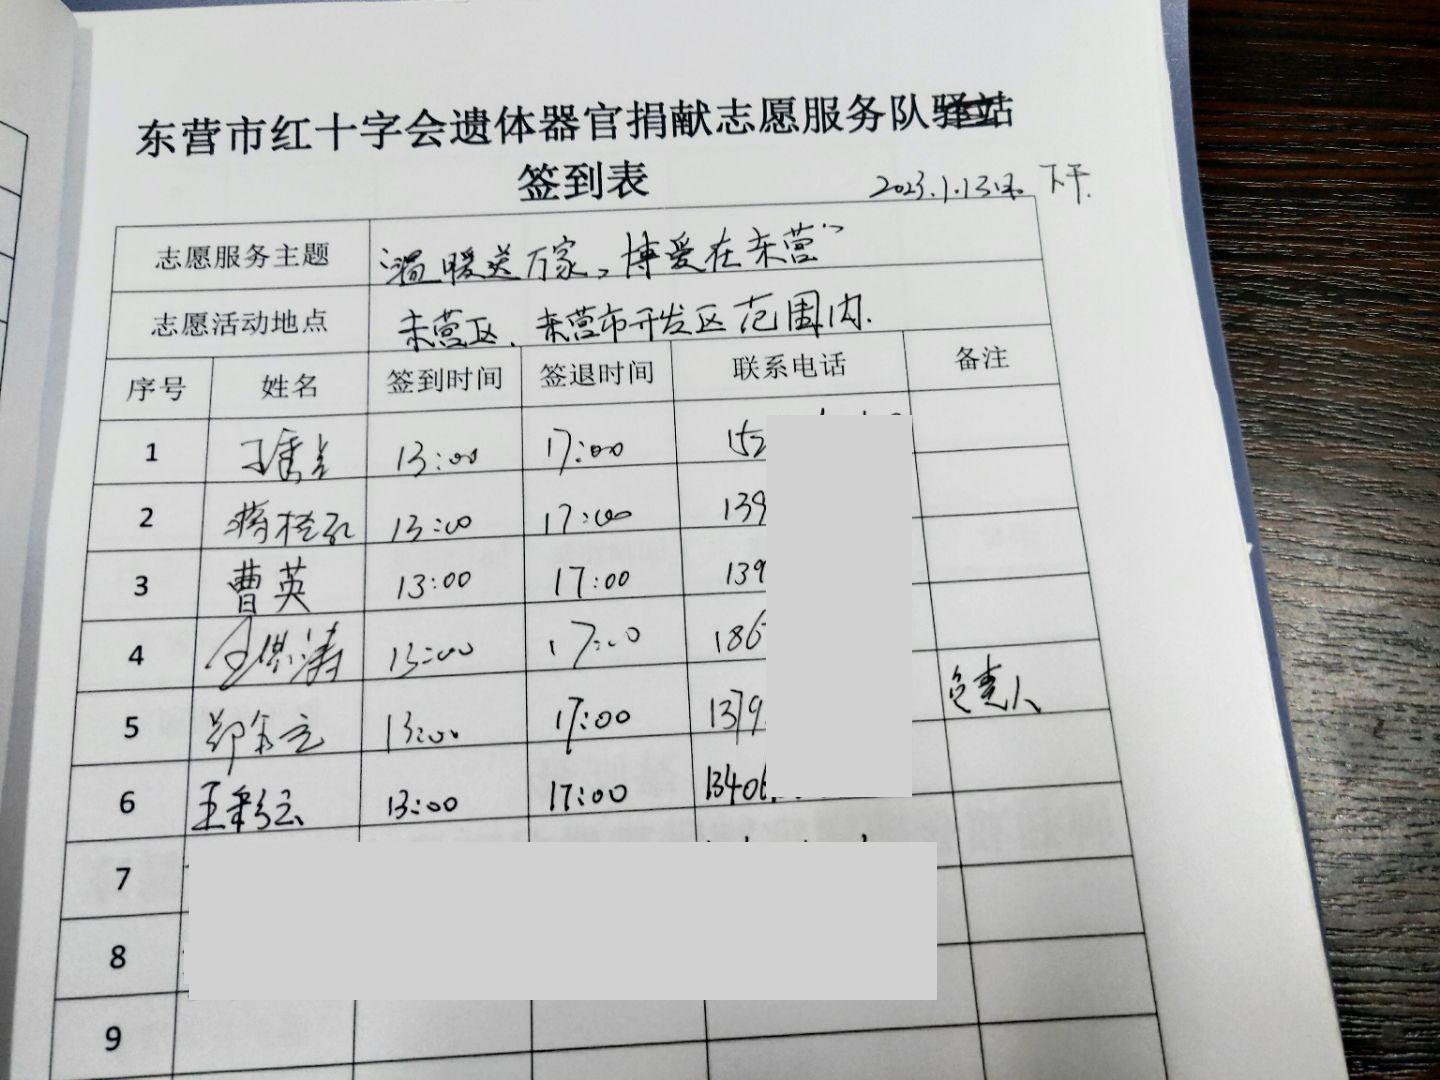 东营市红十字会遗体器官捐献志愿服务队驿站
签到表
2023.1.13日 下午.
志愿服务主题 “温暖送万家,博爱在东营”
志愿活动地点 东营区、东营市开发区范围内.
序号 姓名 签到时间 签退时间 联系电话 备注
1 13:00 17:00 152
2 13:00 17:00 139
3 曹英 13:00 17:00 139
4 13:00 17:00 186
5 郑金立 13:00 17:00 1379 负责人
6 王彩云 13:00 17:00 13406
7
8
9